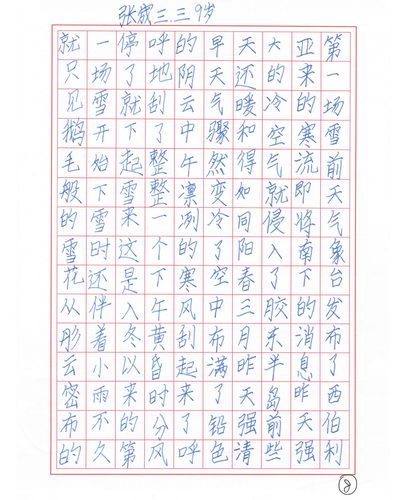 张宬三.三 9岁
第一场雪前天气象台发布了西伯利
亚来的寒流即将南下的消息昨天强
大的冷空气就侵入了胶东半岛前些
天还暖和得如同阳春三月昨天强清
早天气骤然变冷了空中布满了铅色
的阴云中午凛冽的寒风刮起来了呼
呼地刮了整整一个下午黄昏时分风
停了就下起雪来这是入冬以来的第
一场雪开始下雪时还伴着小雨不久
就只见鹅毛般的雪花从彤云密布的